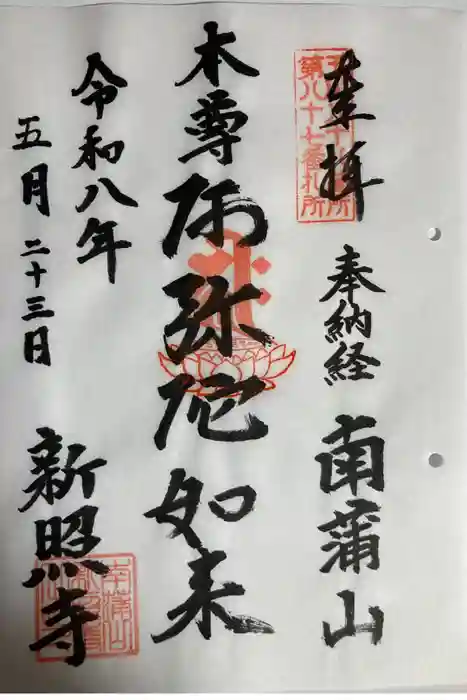 奉拝
第八十七番札所
奉納経
南蒲山
本尊
阿弥陀如来
令和八年
五月二十三日
新照寺